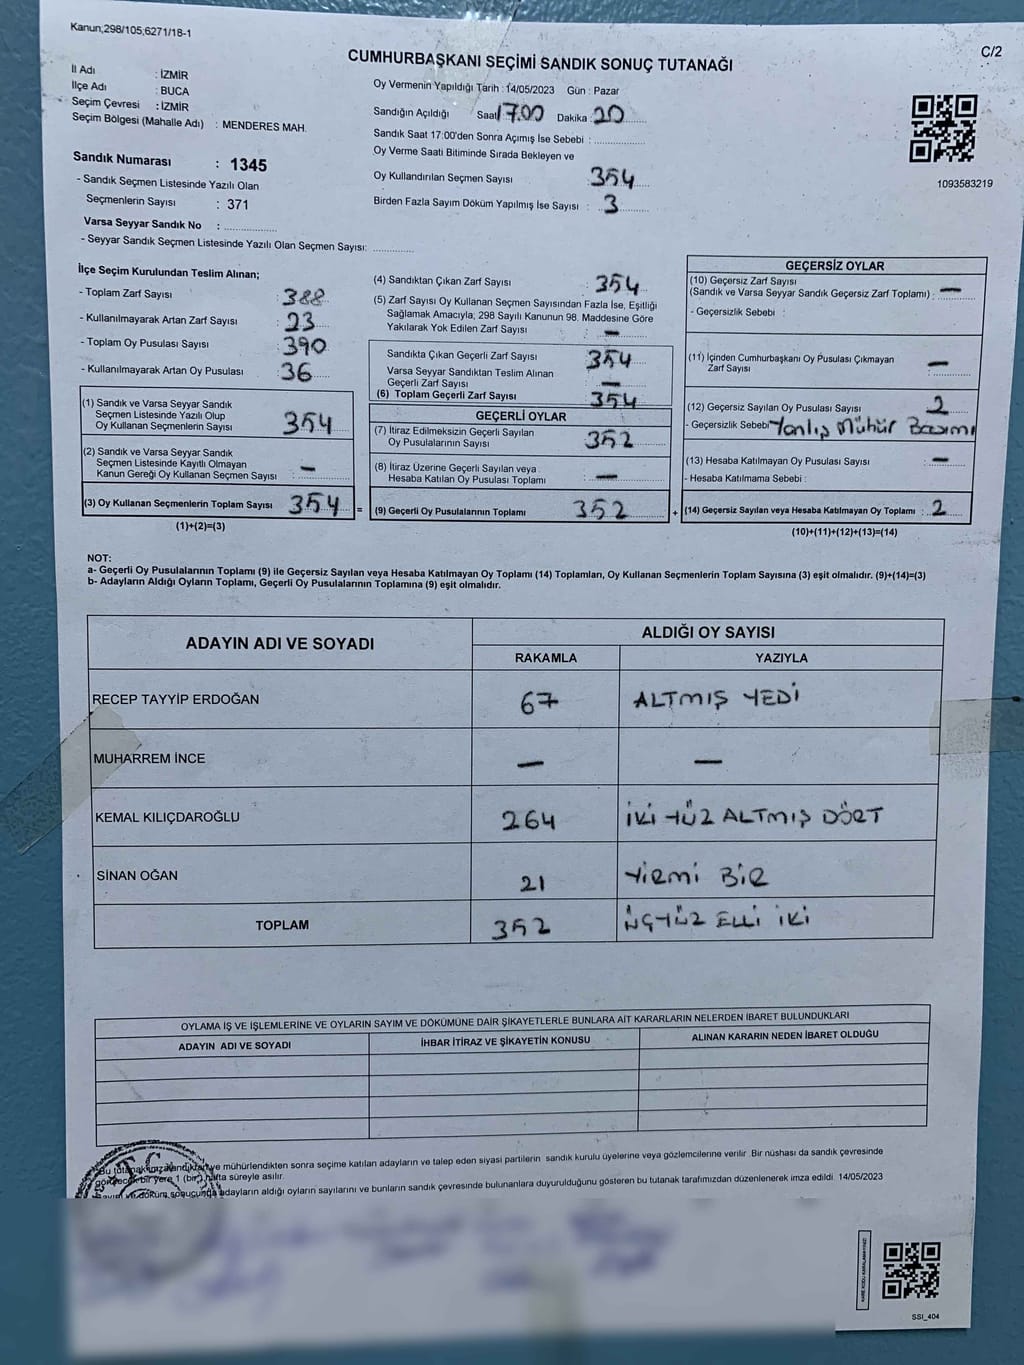 Kanun;298/105;6271/18-1
C/2
CUMHURBAŞKANI SEÇİMİ SANDIK SONUÇ TUTANAĞI
İl Adı : İZMİR
İlçe Adı : BUCA
Seçim Çevresi : İZMİR
Seçim Bölgesi (Mahalle Adı) : MENDERES MAH.
Sandık Numarası : 1345
- Sandık Seçmen Listesinde Yazılı Olan
Seçmenlerin Sayısı : 371
Varsa Seyyar Sandık No :
- Seyyar Sandık Seçmen Listesinde Yazılı Olan Seçmen Sayısı:
Oy Vermenin Yapıldığı Tarih : 14/05/2023 Gün : Pazar
Sandığın Açıldığı Saat 17.00 Dakika : 20
Sandık Saat 17:00'den Sonra Açımış İse Sebebi :
Oy Verme Saati Bitiminde Sırada Bekleyen ve
Oy Kullandırılan Seçmen Sayısı 354
Birden Fazla Sayım Döküm Yapılmış İse Sayısı : 3
1093583219
İlçe Seçim Kurulundan Teslim Alınan;
- Toplam Zarf Sayısı : 388
- Kullanılmayarak Artan Zarf Sayısı : 23
- Toplam Oy Pusulası Sayısı : 390
- Kullanılmayarak Artan Oy Pusulası : 36
(1) Sandık ve Varsa Seyyar Sandık
Seçmen Listesinde Yazılı Olup
Oy Kullanan Seçmenlerin Sayısı : 354
(2) Sandık ve Varsa Seyyar Sandık
Seçmen Listesinde Kayıtlı Olmayan
Kanun Gereği Oy Kullanan Seçmen Sayısı : —
(3) Oy Kullanan Seçmenlerin Toplam Sayısı 354 =
(1)+(2)=(3)
(4) Sandıktan Çıkan Zarf Sayısı : 354
(5) Zarf Sayısı Oy Kullanan Seçmen Sayısından Fazla İse, Eşitliği
Sağlamak Amacıyla; 298 Sayılı Kanunun 98. Maddesine Göre
Yakılarak Yok Edilen Zarf Sayısı : —
Sandıkta Çıkan Geçerli Zarf Sayısı 354
Varsa Seyyar Sandıktan Teslim Alınan
Geçerli Zarf Sayısı : —
(6) Toplam Geçerli Zarf Sayısı 354
GEÇERLİ OYLAR
(7) İtiraz Edilmeksizin Geçerli Sayılan
Oy Pusulalarının Sayısı : 352
(8) İtiraz Üzerine Geçerli Sayılan veya
Hesaba Katılan Oy Pusulası Toplamı : —
(9) Geçerli Oy Pusulalarının Toplamı 352 +
GEÇERSİZ OYLAR
(10) Geçersiz Zarf Sayısı
(Sandık ve Varsa Seyyar Sandık Geçersiz Zarf Toplamı) : —
- Geçersizlik Sebebi :
(11) İçinden Cumhurbaşkanı Oy Pusulası Çıkmayan
Zarf Sayısı : —
(12) Geçersiz Sayılan Oy Pusulası Sayısı : 2
- Geçersizlik Sebebi Yanlış Mühür Basımı
(13) Hesaba Katılmayan Oy Pusulası Sayısı : —
- Hesaba Katılmama Sebebi :
(14) Geçersiz Sayılan veya Hesaba Katılmayan Oy Toplamı : 2
(10)+(11)+(12)+(13)=(14)
NOT:
a- Geçerli Oy Pusulalarının Toplamı (9) ile Geçersiz Sayılan veya Hesaba Katılmayan Oy Toplamı (14) Toplamları, Oy Kullanan Seçmenlerin Toplam Sayısına (3) eşit olmalıdır. (9)+(14)=(3)
b- Adayların Aldığı Oyların Toplamı, Geçerli Oy Pusulalarının Toplamına (9) eşit olmalıdır.
ADAYIN ADI VE SOYADI ALDIĞI OY SAYISI
RAKAMLA YAZIYLA
RECEP TAYYİP ERDOĞAN 67 ALTMIŞ YEDİ
MUHARREM İNCE — —
KEMAL KILIÇDAROĞLU 264 İKİ YÜZ ALTMIŞ DÖRT
SİNAN OĞAN 21 YİRMİ BİR
TOPLAM 352 ÜÇYÜZ ELLİ İKİ
OYLAMA İŞ VE İŞLEMLERİNE VE OYLARIN SAYIM VE DÖKÜMÜNE DAİR ŞİKAYETLERLE BUNLARA AİT KARARLARIN NELERDEN İBARET BULUNDUKLARI
ADAYIN ADI VE SOYADI İHBAR İTİRAZ VE ŞİKAYETİN KONUSU ALINAN KARARIN NEDEN İBARET OLDUĞU
Bu tutanak imzalandıktan ve mühürlendikten sonra seçime katılan adayların ve talep eden siyasi partilerin sandık kurulu üyelerine veya gözlemcilerine verilir. Bir nüshası da sandık çevresinde
görecek bir yere 1 (bir) hafta süreyle asılır.
Sayım ve döküm sonucunda adayların aldığı oyların sayılarını ve bunların sandık çevresinde bulunanlara duyurulduğunu gösteren bu tutanak tarafımızdan düzenlenerek imza edildi. 14/05/2023
KARE KODU KARALAMAYINIZ!
SSI_404